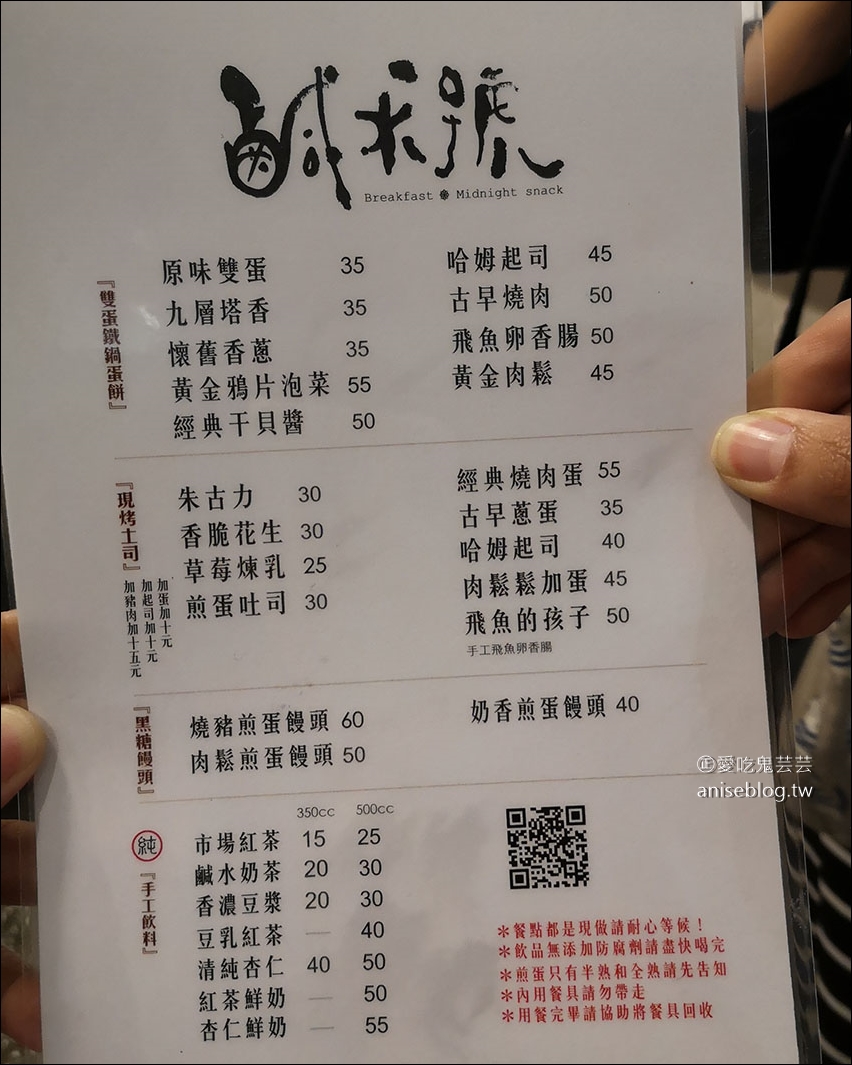 鹹水號
Breakfast Midnight snack
『雙蛋鐵鍋蛋餅』
原味雙蛋 35
九層塔香 35
懷舊香蔥 35
黃金鴉片泡菜 55
經典干貝醬 50
哈姆起司 45
古早燒肉 50
飛魚卵香腸 50
黃金肉鬆 45
『現烤土司』
加蛋加十元
加起司加十元
加豬肉加十五元
朱古力 30
香脆花生 30
草莓煉乳 25
煎蛋吐司 30
經典燒肉蛋 55
古早蔥蛋 35
哈姆起司 40
肉鬆鬆加蛋 45
飛魚的孩子 50
手工飛魚卵香腸
『黑糖饅頭』
燒豬煎蛋饅頭 60
肉鬆煎蛋饅頭 50
奶香煎蛋饅頭 40
純
『手工飲料』
350cc 500cc
市場紅茶 15 25
鹹水奶茶 20 30
香濃豆漿 20 30
豆乳紅茶 — 40
清純杏仁 40 50
紅茶鮮奶 — 50
杏仁鮮奶 — 55
＊餐點都是現做請耐心等候！
＊飲品無添加防腐劑請盡快喝完
＊煎蛋只有半熟和全熟請先告知
＊內用餐具請勿帶走
＊用餐完畢請協助將餐具回收
㊣愛吃鬼芸芸
aniseblog.tw